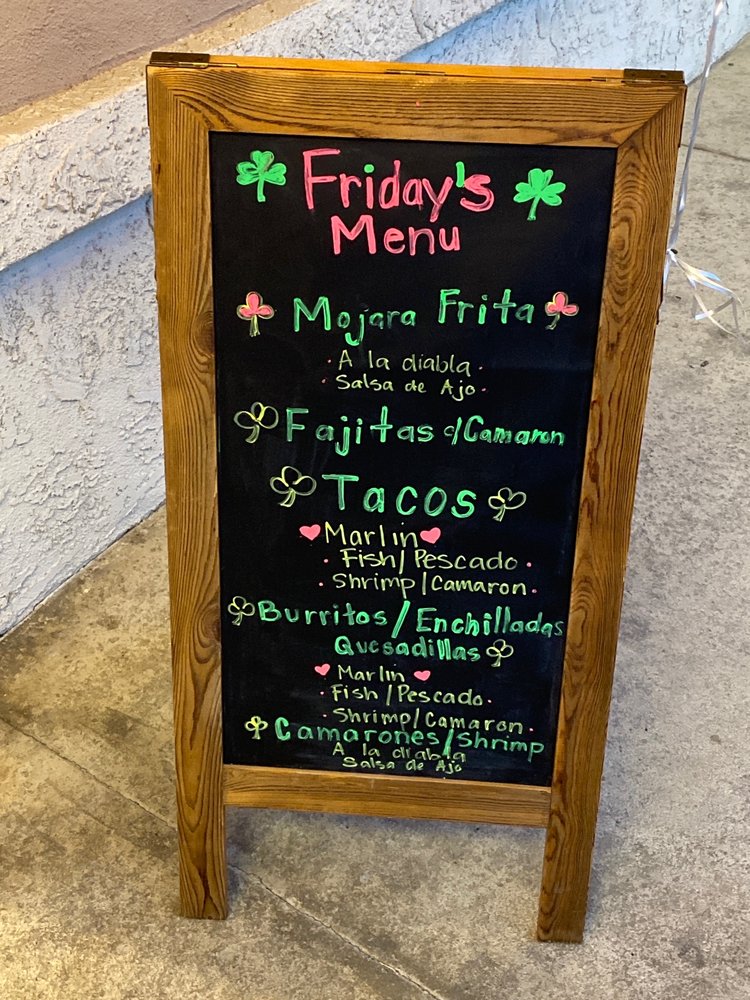 Friday's
Menu
Mojara Frita
· A la diabla ·
· Salsa de Ajo ·
Fajitas c/Camaron
Tacos
Marlin
· Fish/Pescado ·
· Shrimp/Camaron ·
Burritos/Enchilladas
Quesadillas
Marlin
· Fish/Pescado ·
· Shrimp/Camaron ·
Camarones/Shrimp
A la diabla
Salsa de Ajo